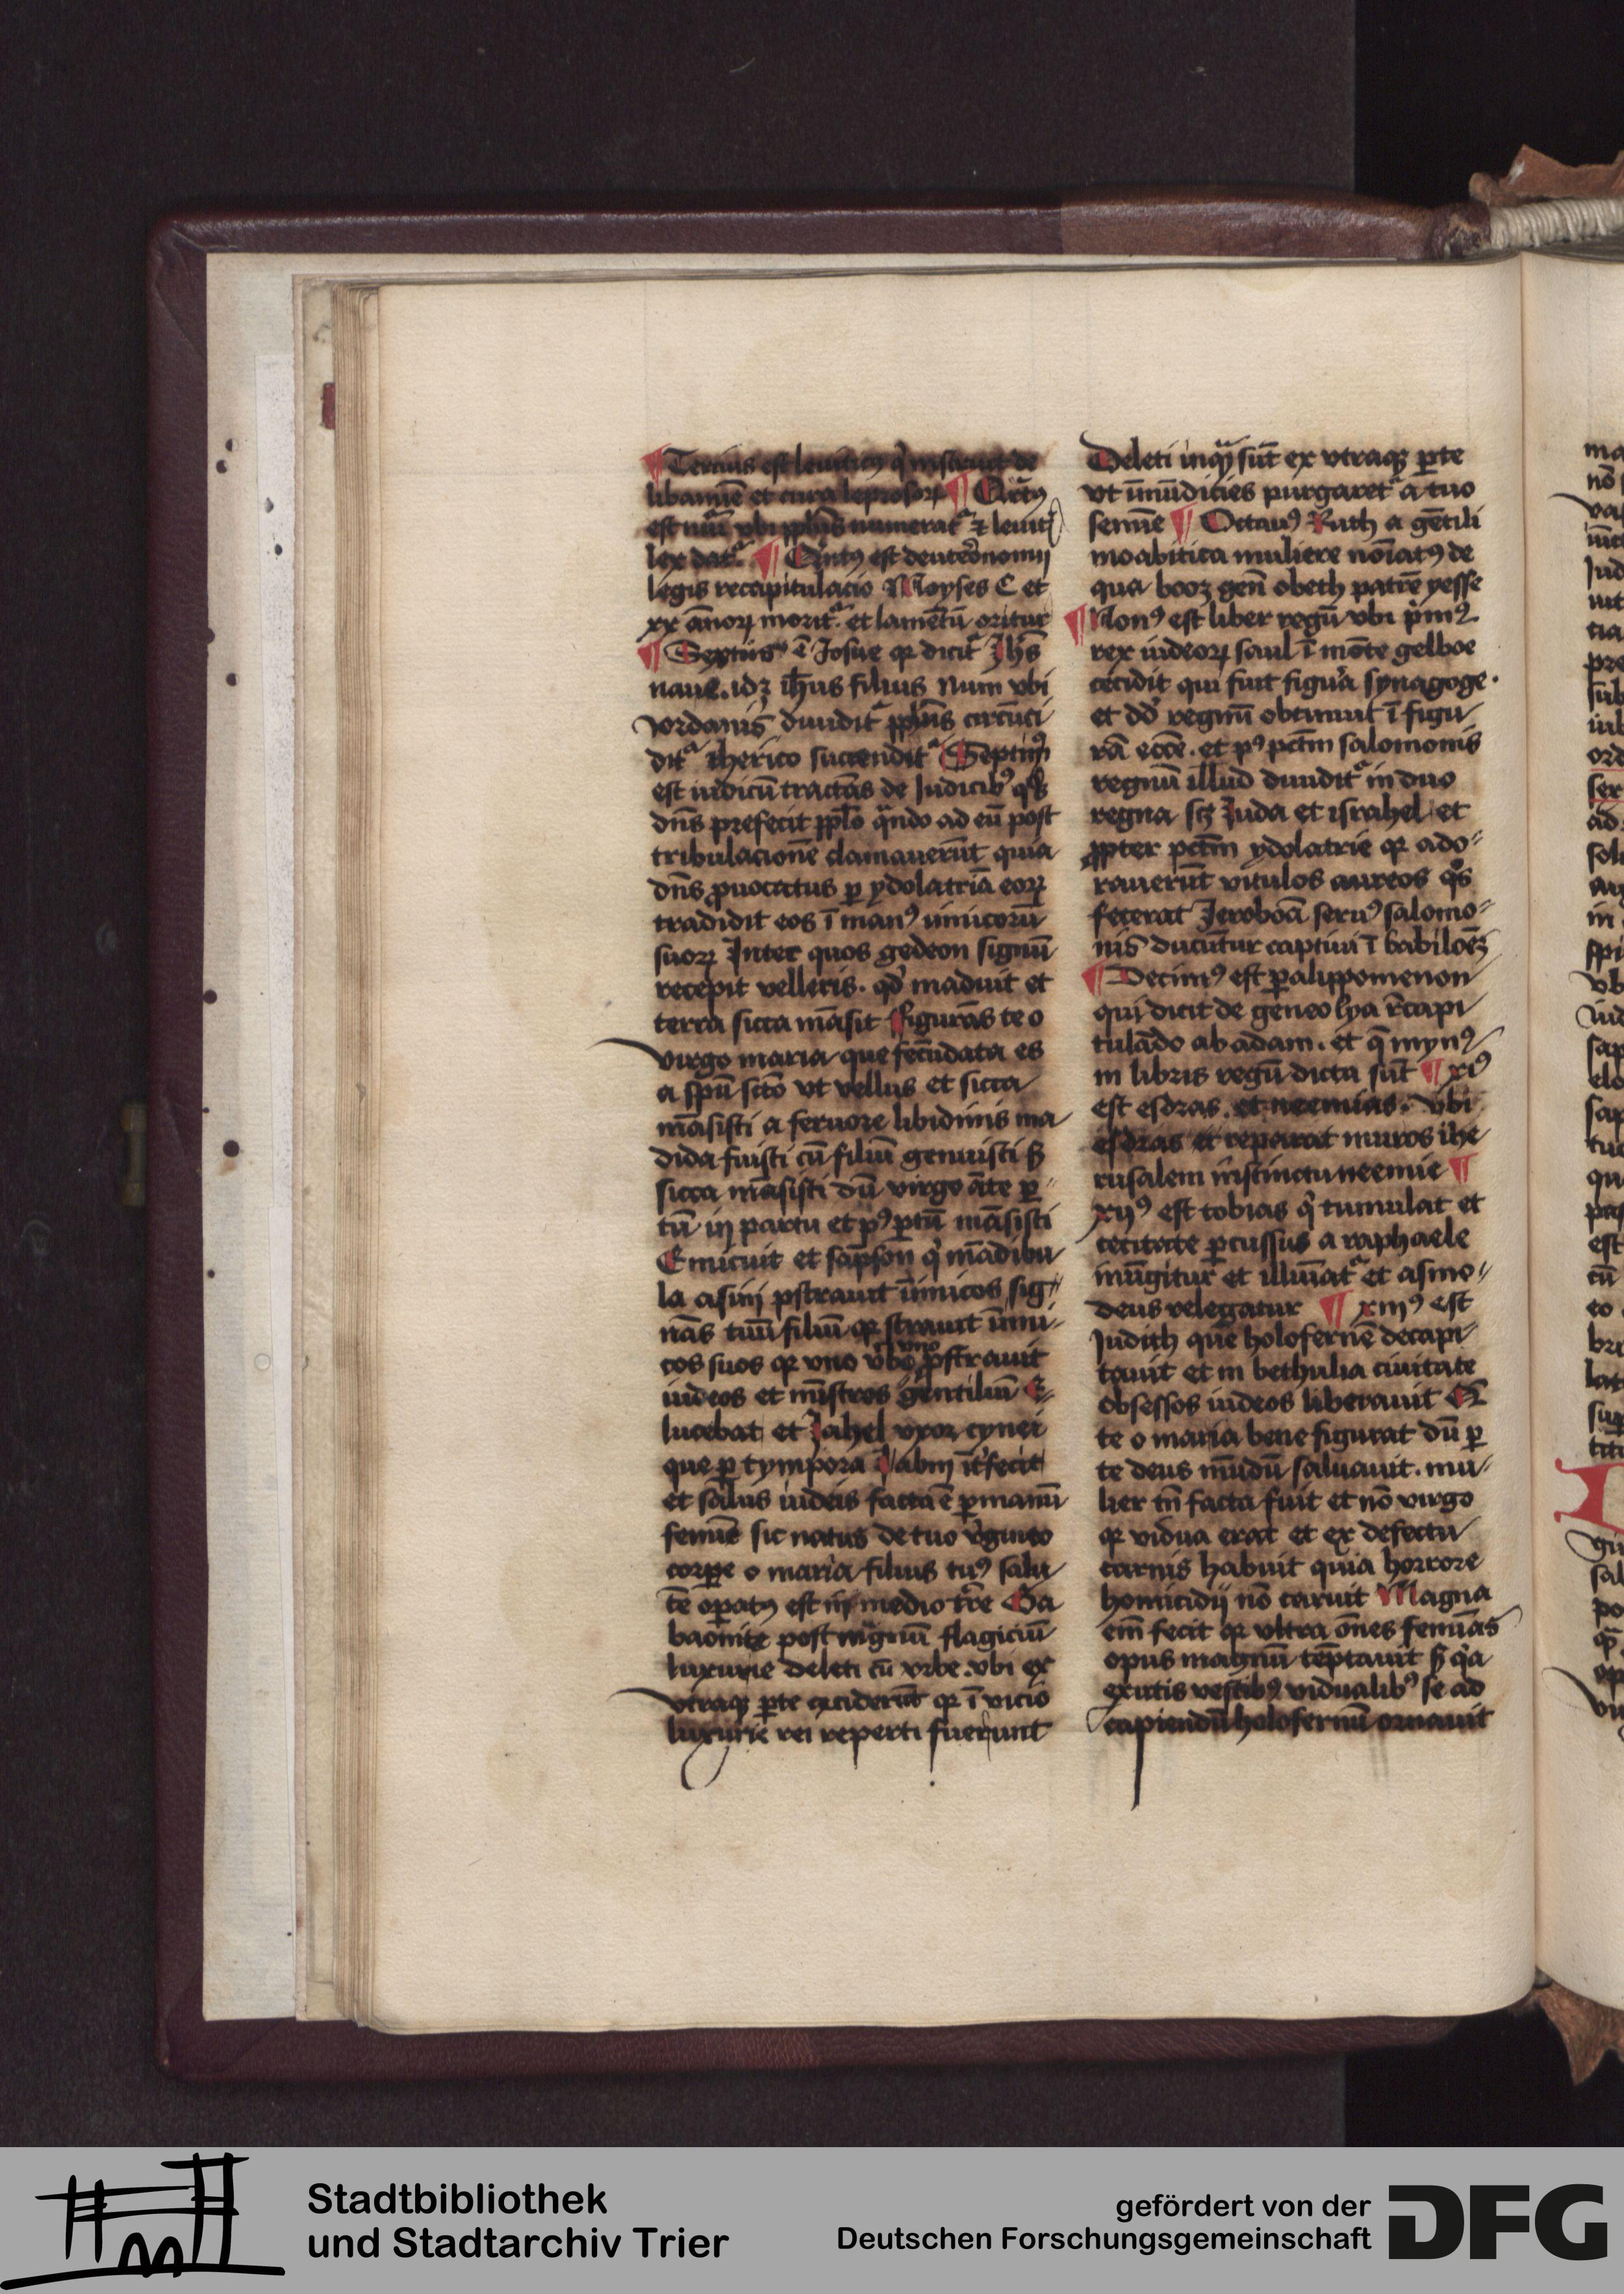 ¶ Tercius est leuiticꝰ q̇ instruit de
libamīe et cura leprosoꝝ ¶ Qͣrtꝰ
est nūi vbi ppl̄us numeratᷣ ⁊ leuit̄
lex datᷣ ¶ Qⁱntus est deuteronomij
legis recapitulacio Moyses C et
xx ānoꝝ moritᷣ et lamētū oritur
¶ Sextus ē Josue qꝛ dicitᷣ Jhs̄
naue. idꝫ ih̄us filius Num vbi
yordanis diuiditᷣ ppl̄us circūci
ditᷣ iherico succenditᷣ Septimꝰ
est iudicū tractās de Judicibꝰ qͦs
dn̄s prefecit ppl̄o qn̄do ad eū post
tribulacionē clamauerūt quia
dn̄s ꝓuocatus ꝑ ydolatriā eoꝝ
tradidit eos ī manꝰ inimicorū
suoꝝ Inter quos gedeon signū
recepit velleris. qd̓ maduit et
terra sicca māsit figurās te o
virgo maria que fecūdata es
a spū sctō vt vellus et sicca
māsisti a feruore libidinis ma
dida fuisti cū filiū genuisti sꝫ
sicca māsisti dū virgo āte ꝑ
tū in partu et pꝰ ꝑtū māsisti
Emicuit et sāpson q̇ mādibu
la asini ꝓstrauit inimicos sig
nās tuū filiū qꝛ strauit inimi
cos suos qꝛ vno vbo ꝓstrauit
iudeos et mīstros gentiliū E
lucebat et Jahel vxor cynei
que ꝑ tympora Jabin īt̓fecit
et salus iudeis facta ē ꝑ manū
femīe sic natus de tuo v̓gineo
corꝑe o maria filius tuꝰ salu
tē oꝑatꝰ est in medio tr̄re Ga
baonite post magnū flagiciū
luxurie deleti cū vrbe vbi ex
vtraqꝫ ꝑte ceciderūt qꝛ ī vicio
luxurie rei reperti fuerunt
Deleti inqͣꝫ sūt ex vtraqꝫ ꝑte
vt īmūdicies purgaretᷣ a tuo
semīe ¶ Octauꝰ Ruth a gētili
moabitica muliere noīatꝰ de
qua booz gen̄ obeth patrē yesse
¶ Nonꝰ est liber regū vbi p̓mꝰ
rex iudeoꝝ saul ī mōte gelboe
cecidit qui fuit figura synagoge.
et dd̓ regnū obtinuit ī figu
rā eccē. et pꝰ pctm̄ salomonis
regnū illud diuiditᷣ in duo
regna scꝫ Juda et israhel et
ꝓpter pctm̄ ydolatrie qꝛ ado
rauerūt vitulos aureos qͦs
fecerat Jeroboā seruꝰ salomo
nis ducūtur captiui ī babiloēꝫ
¶ Decimꝰ est ꝑalippomenon
qui dicit de geneolya r̄capi
tulādo ab adam. et q̄ mynꝰ
in libris regū dicta sūt ¶ xiꝰ
est esdras. et neemias. vbi
esdras et reparat muros ihe
rusalem instinctu neemie ¶
xijꝰ est tobias q̇ tumulat et
cecitate ꝑcussus a raphaele
inūgitur et illuīatᷣ et asmo
deus relegatur ¶ xiijꝰ est
Judith que holofernē decapi
tauit et in bethulia ciuitate
obsessos iudeos liberauit
te o maria bene figurat dū ꝑ
te deus mūdū saluauit. mu
lier tn̄ facta fuit et nō virgo
qꝛ vidua erat et ex defectu
carnis habuit quia horrore
homicidij nō caruit Magna
em̄ fecit qꝛ vltra ōnes femīas
opus magnū tēptauit sꝫ qͥa
exutis vestibꝰ vidualibꝰ se ad
capiendū holofernū ornauit
Stadtbibliothek
und Stadtarchiv Trier
gefördert von der
Deutschen Forschungsgemeinschaft
DFG